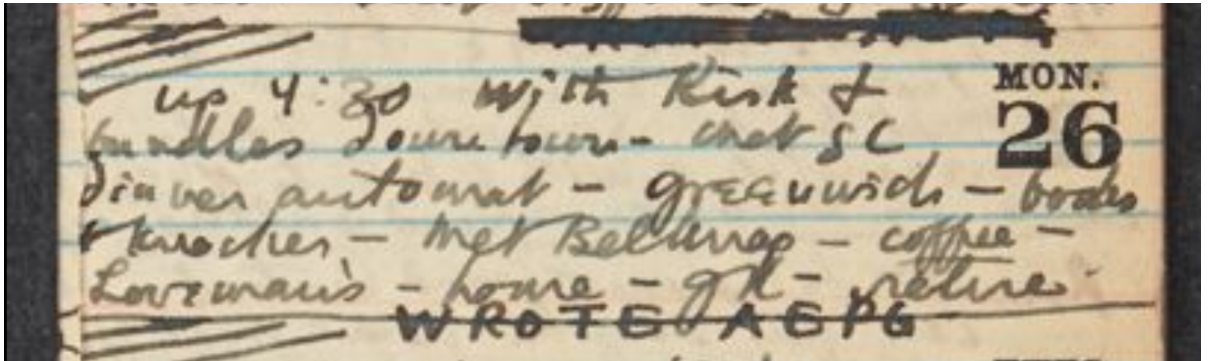 up 4:30 with Kirk &
MON.
26
bundles downtown - met SL
dinner automat - Greenwich - books
& knocker - met Belknap - coffee -
Loveman's - home - GK - retire
WROTE AEPG